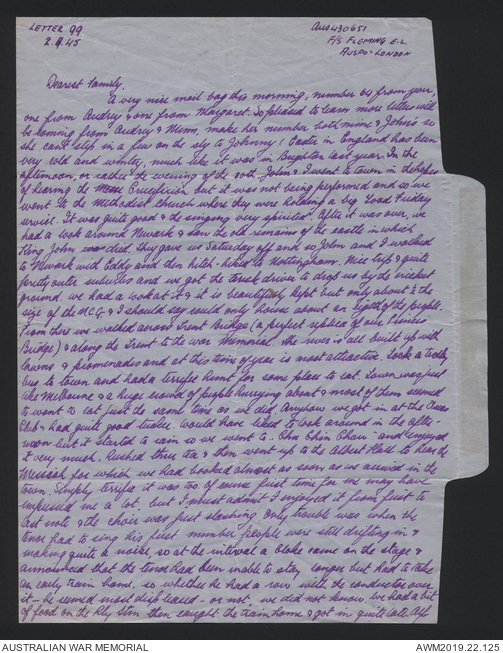 LETTER 99
2.4.45
Aus 430651
F/S FLEMING E.L.
AUSPO - LONDON
Dearest Family,
A very nice mail bag this morning, number 64 from your,
one from Audrey & one from Margaret. So pleased to learn more letters will
be coming from Audrey & Mum, make her number both mine & John's so
she can't slip in a few on the sly to Johnny! Easter in England has been
very cold and wintry, much like it was in Brighton last year. In the
afternoon, or rather the evening of the 30th, John & I went to town in the hopes
of hearing the Crucifixion but it was not being performed and so we
went to the Methodist church where they were holding a big Good Friday
service. It was quite good & the singing very spirited. After it was over, we
had a look around Newark & saw the old remains of the castle in which
King John died. They gave us Saturday off and so John and I walked
to Newark with Eddy and then hitch-hiked to Nottingham. Nice trip & quite
pretty outer suburbs and we got the truck driver to drop us by the cricket
ground. We had a look at it & it is beautifully kept but only about ½ the
size of the MCG & I should say could only house about an eighth of the people.
From there we walked across Trent Bridge (a perfect replica of our Princes
Bridge) & along the Trent to the War Memorial. The river is all built up with
lawns & promenades and at this time of year is most attractive. Took a trolly
bus to town and had a terrific hunt for some place to eat. Town was just
like Melbourne & a huge crowd of people hurrying about & most of them seemed
to want to eat just the same time as we did. Anyhow we got in at the
Club & had quite good tucker. Would have liked to look around in the after-
noon but it started to rain so we went to "Chu Chin Chow" and enjoyed
it very much. Rushed thru tea & then went up to the Albert Hall to hear the
Messiah for which we had booked almost as soon as we arrived in the
town. Simply terrific it was too of course first time for me may have
impressed me a lot, but I must admit I enjoyed it from first to
last note & the choir was just smashing. Only trouble was when the
tenor had to sing his first number people were still drifting in &
making quite a noise, so at the interval a bloke came on the stage &
announced that the tenor had been unable to stay longer but had to take
an early train home, so whether he had a row with the conductor over
it - he seemed most displeased - or not, we did not know. We had a bit
of food on the Rly Stn then caught the train home & got in quite late. All
AUSTRALIAN WAR MEMORIAL
AWM2019.22.125